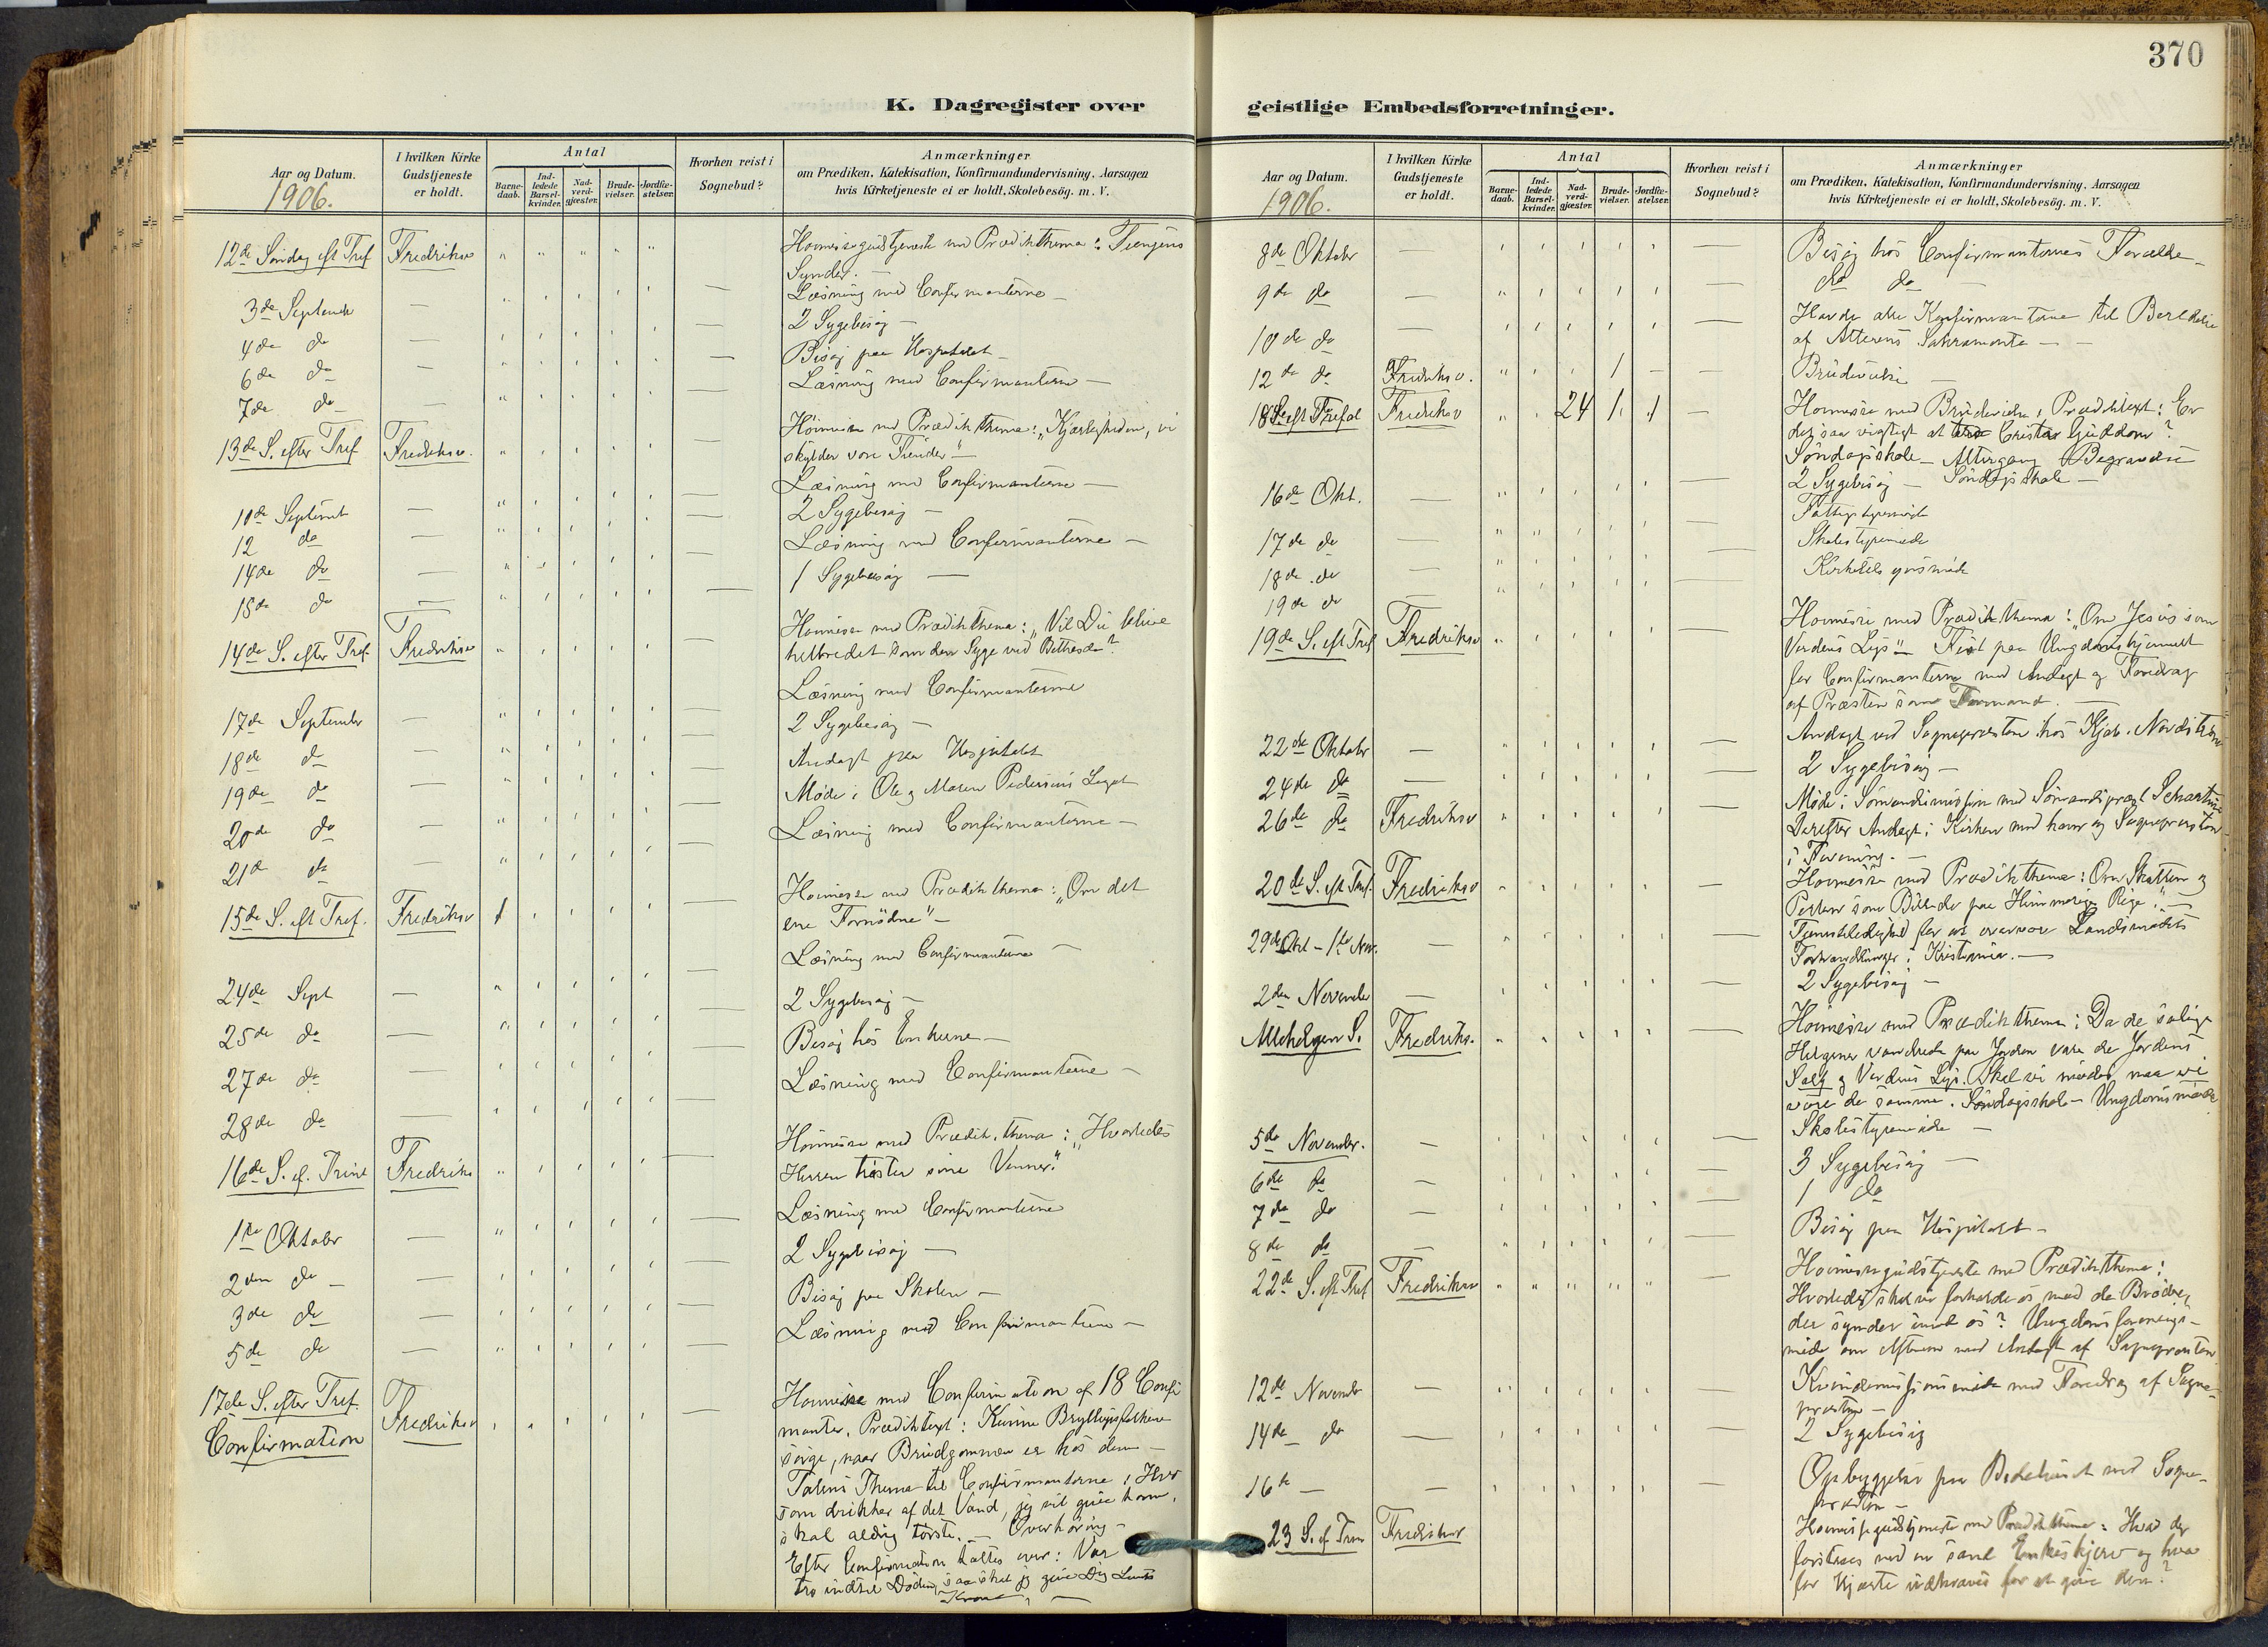 370
K. Dagregister over
Aar og Datum.
1906.
I hvilken Kirke Gudstjeneste er holdt.
Antal
Barne-daab.
Ind-ledede Barsel-kvinder.
Nad-verd-gjæster.
Brude-vielser.
Jordfæ-stelser.
Hvorhen reist i Sognebud?
Anmærkninger
om Prædiken, Katekisation, Konfirmandundervisning. Aarsagen
hvis Kirketjeneste ei er holdt. Skolebesög. m. V.
12de Söndag eft Tref Fredriksv Höimessegudstjeneste med Prædikthema: Tungens
Synder. —
3de September — Læsning med Confirmanterne —
4de do — 2 Sygebesøg —
6de do — Besøg paa Hospitalet —
7de do — Læsning med Confirmanterne —
13de S. efter Tref Fredriksv. Höimesse med Prædikthema: „Kjærligheden, vi
skylder vore Fiender" —
10de Septemb — Læsning med Confirmanterne —
12 do — 2 Sygebesøg —
14de do — Læsning med Confirmanterne —
15de do — 1 Sygebesøg —
14de S. efter Tref. Fredriksv Höimesse med Prædikthema: „Vil Du blive
helbredet som den Syge ved Bethesda?
17de September — Læsning med Confirmanterne
18de do — 2 Sygebesøg —
19de do — Andagt paa Hospitalet
20de do — Møde i Ole og Maren Pedersens Legat
21de do — Læsning med Confirmanterne —
15de S. eft Tref. Fredriksv 1 Höimesse med Prædikthema: „Om det
ene Fornödne" —
24de Sept — Læsning med Confirmanterne —
25de do — 2 Sygebesøg —
27de do — Besøg hos Enkerne —
28de do — Læsning med Confirmanterne —
16de S. ef. Trine Fredriks Höimesse med Prædik. thema: „Hvorledes
Herren trøster sine Venner."
1ste Oktober — Læsning med Confirmanterne
2den do — 2 Sygebesøg —
3de do — Besøg paa Skolen —
5de do — Læsning med Confirmanterne —
17de S. efter Tref.
Confirmation Fredriksv Höimesse med Confirmation af 18 Confir
manter. Prædiktext: Kunne Bryllupsfolkene
sørge, naar Brudgommen er hos dem —
Talens Thema til Confirmanterne: Hver
som drikker af det Vand, jeg vil give ham,
skal aldrig tørste. — Overhøring —
Efter Confirmation taltes over: Vær
tro indtil Døden, saa skal jeg give Dig Livets
Krone —
geistlige Embedsforretninger.
Aar og Datum.
1906.
I hvilken Kirke Gudstjeneste er holdt.
Antal
Barne-daab.
Ind-ledede Barsel-kvinder.
Nad-verd-gjæster.
Brude-vielser.
Jordfæ-stelser.
Hvorhen reist i Sognebud?
Anmærkninger
om Prædiken, Katekisation, Konfirmandundervisning. Aarsagen
hvis Kirketjeneste ei er holdt, Skolebesög. m. V.
8de Oktober — Besøg hos Confirmanternes Forældre —
9de do — do do —
10de do — Havde alle Konfirmanterne til
af Alterens Sakramente —
12de do Fredriksv. 1 Brudevielse —
18 S. eft Trefol Fredriksv 24 1 1 — Höimesse med Brudevielse, Prædiktext: Er
det saa vigtigt at Cristus Guddom?
Søndagsskole — Altergang Begravelse
16de Okt. — 2 Sygebesøg — Søndagsskole —
17de do — Fattigstyremøde
18de do — Skolestyremøde
19de do — Kirketilsynsmøde
19de S. eft Tref Fredriksv Höimesse med Prædikthema: „Om Jesus som
Verdens Lys" — Fest paa Ungdomshjemmet
for Confirmanterne med Andagt og Foredrag
af Præsten som Formand. —
22de Oktober — Andagt ved Sognepresten hos Kjøb. Nordström
24de do — 2 Sygebesøg —
26de do Fredriksv Møde i Sömandsmissjon med Sömandsprest
Derefter Andagt i Kirken med ham og Sognepresten
i Forening. —
20de S. eft Tref. Fredriksv Höimesse med Prædikthema: Om Skatten og
Perlen som Billeder paa Himmeriges Rige". —
29de Okt — 1ste Nov. — Tjenestledighed for at overvære Landsmødets
Forhandlinger i Kristiania. —
2den November — 2 Sygebesøg —
Allehelgens S. Fredriks. Höimesse med Prædikthema: Da de salige
Helgener vandrede paa Jorden vare de Jordens
Salt og Verdens Lys. Skal vi mødes maa vi
være de samme. Søndagsskole — Ungdomsmøde
5de November. — Skolestyremøde —
6de do — 3 Sygebesøg —
7de do — 1 do
8de do — Besøg paa Hospitalet —
22de S. eft Tref Fredriksv Höimessegudstjeneste med Prædikthema:
Hvorledes skal vi forholde os mod de Brødre,
der synder imod os? Ungdomsforenings-
møde om Aftenen med Andagt af Sognepresten
12de Novembr — Kvindemissionsmøde med Foredrag af Sogne-
presten —
14de do — 2 Sygebesøg
16de — — Opbyggelse paa Bedehuset med Sogne-
presten —
23 S. ef Trin Fredriksv Höimessegudstjeneste med Prædikthema: Hvad der
forstaaes ved en sand Enkes skjerv og hva
for Hjærte udkræves for at give den?